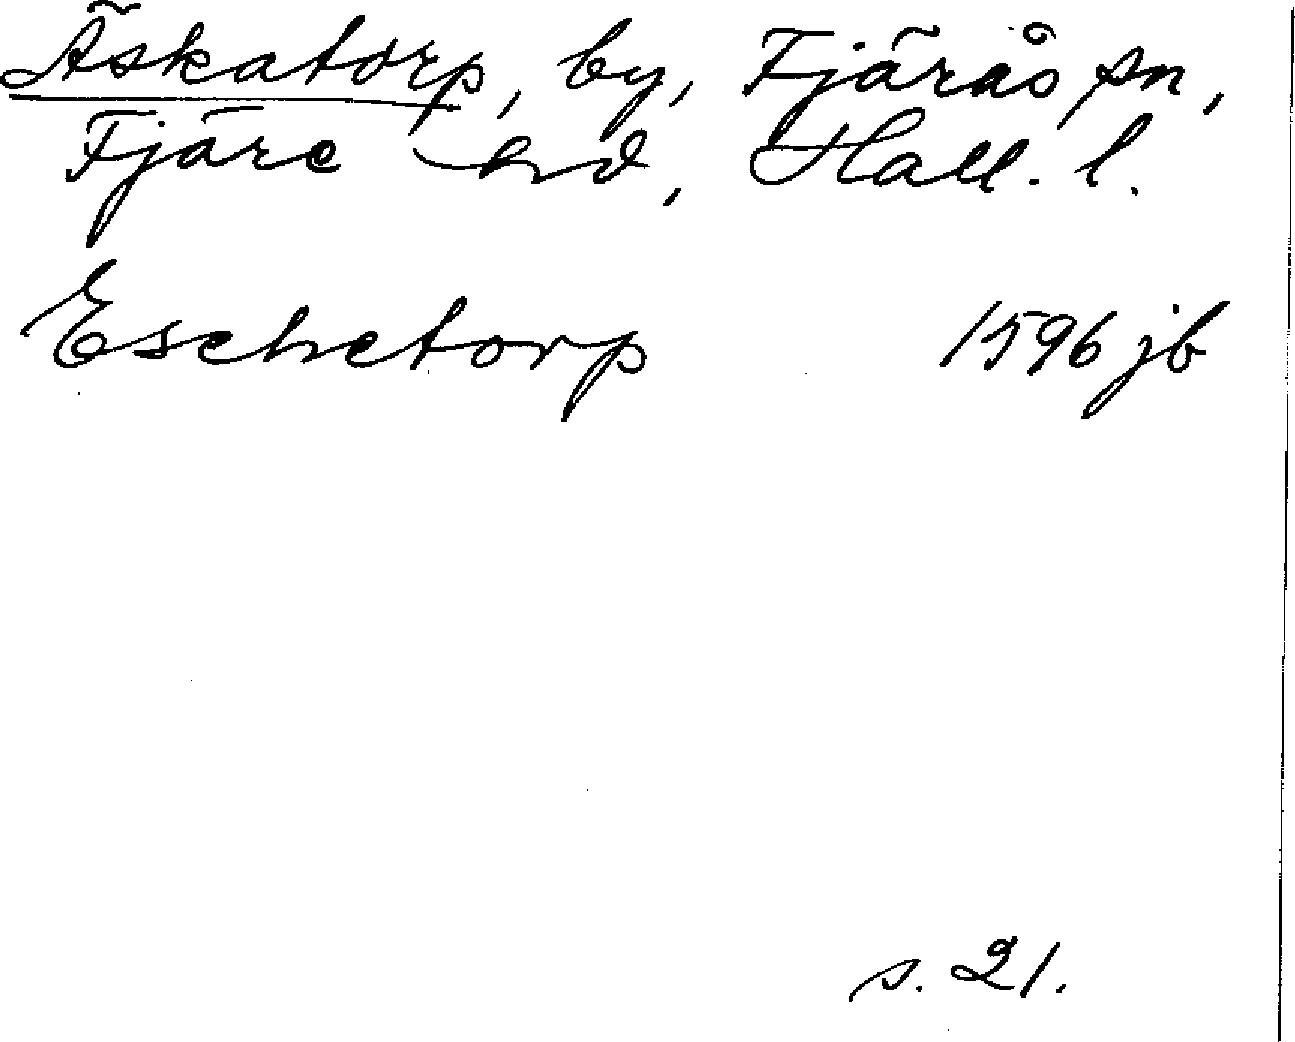 Äskatorp, by, Fjärås sn,
Fjäre hd, Hall. l.
Eschetorp 1596 jb
s. 21.